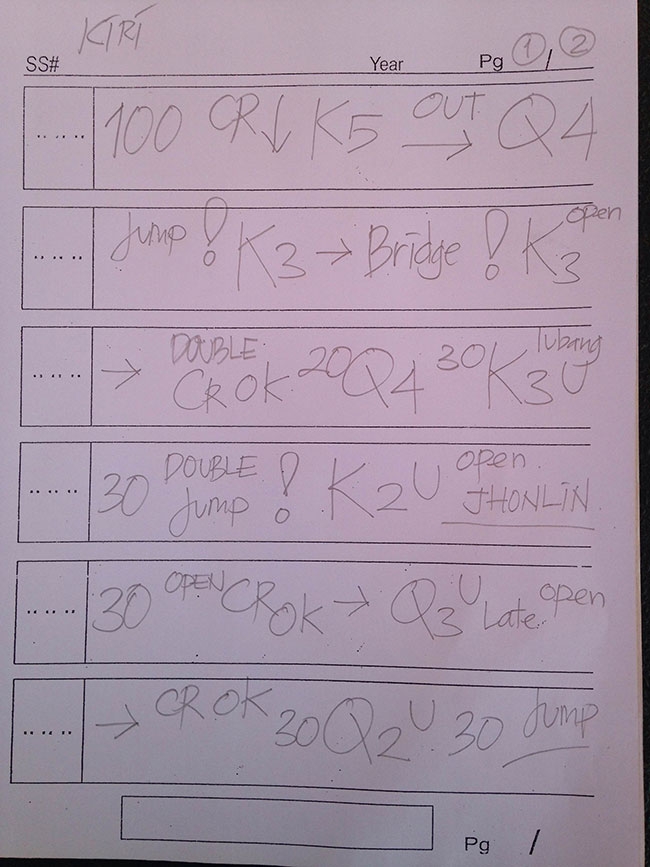 KIRI
SS# Year Pg 1 / 2
100 CR↓ K5 OUT → Q4
Jump ! K3 → Bridge ! K3 open
→ DOUBLE CR OK 20 Q4 30 K3 U lubang
30 DOUBLE Jump ! K2 U open JHONLIN
30 OPEN CR OK → Q3 U Late open
→ CR OK 30 Q2 U 30 Jump
Pg /